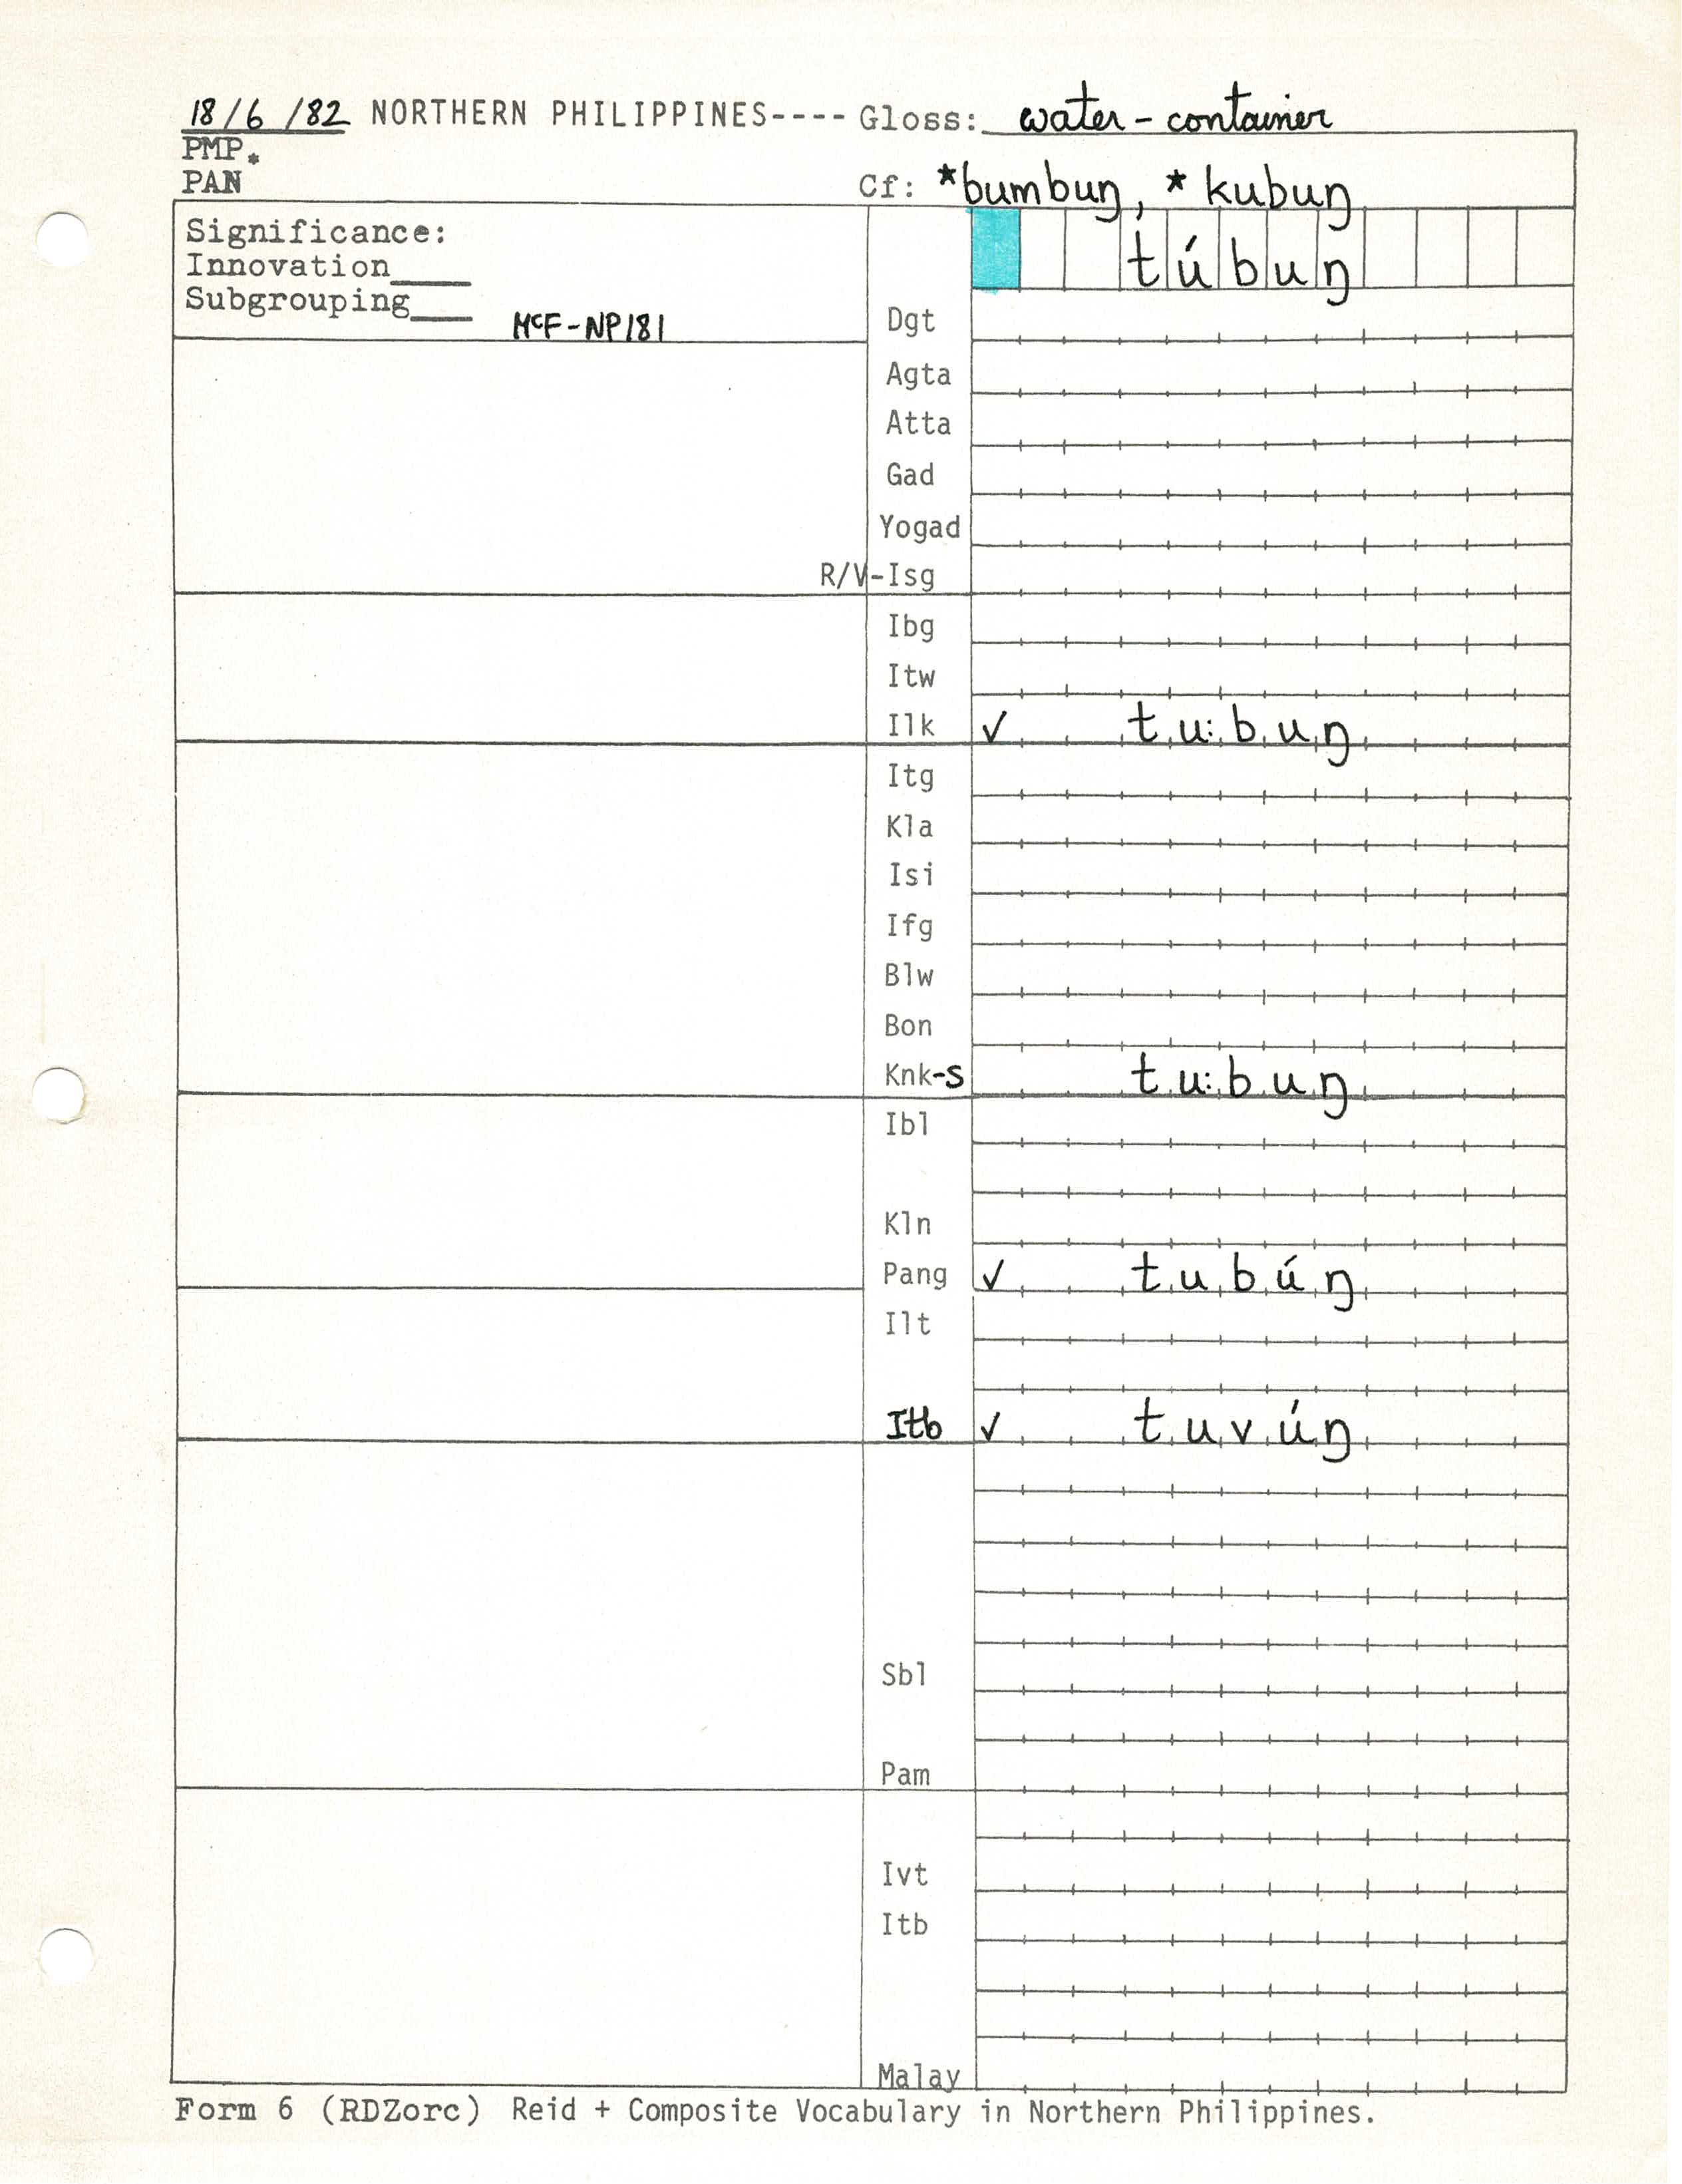 18/6/82 NORTHERN PHILIPPINES---- Gloss: water-container
PMP*
PAN Cf: *bumbuŋ, *kubuŋ
Significance:
Innovation____
Subgrouping___
túbuŋ
McF-NP181
Dgt
Agta
Atta
Gad
Yogad
R/V-Isg
Ibg
Itw
Ilk ✓ tu:buŋ
Itg
Kla
Isi
Ifg
Blw
Bon
Knk-S tu:buŋ
Ibl
Kln
Pang ✓ tubúŋ
Ilt
Itb ✓ tuvúŋ
Sbl
Pam
Ivt
Itb
Malay
Form 6 (RDZorc) Reid + Composite Vocabulary in Northern Philippines.